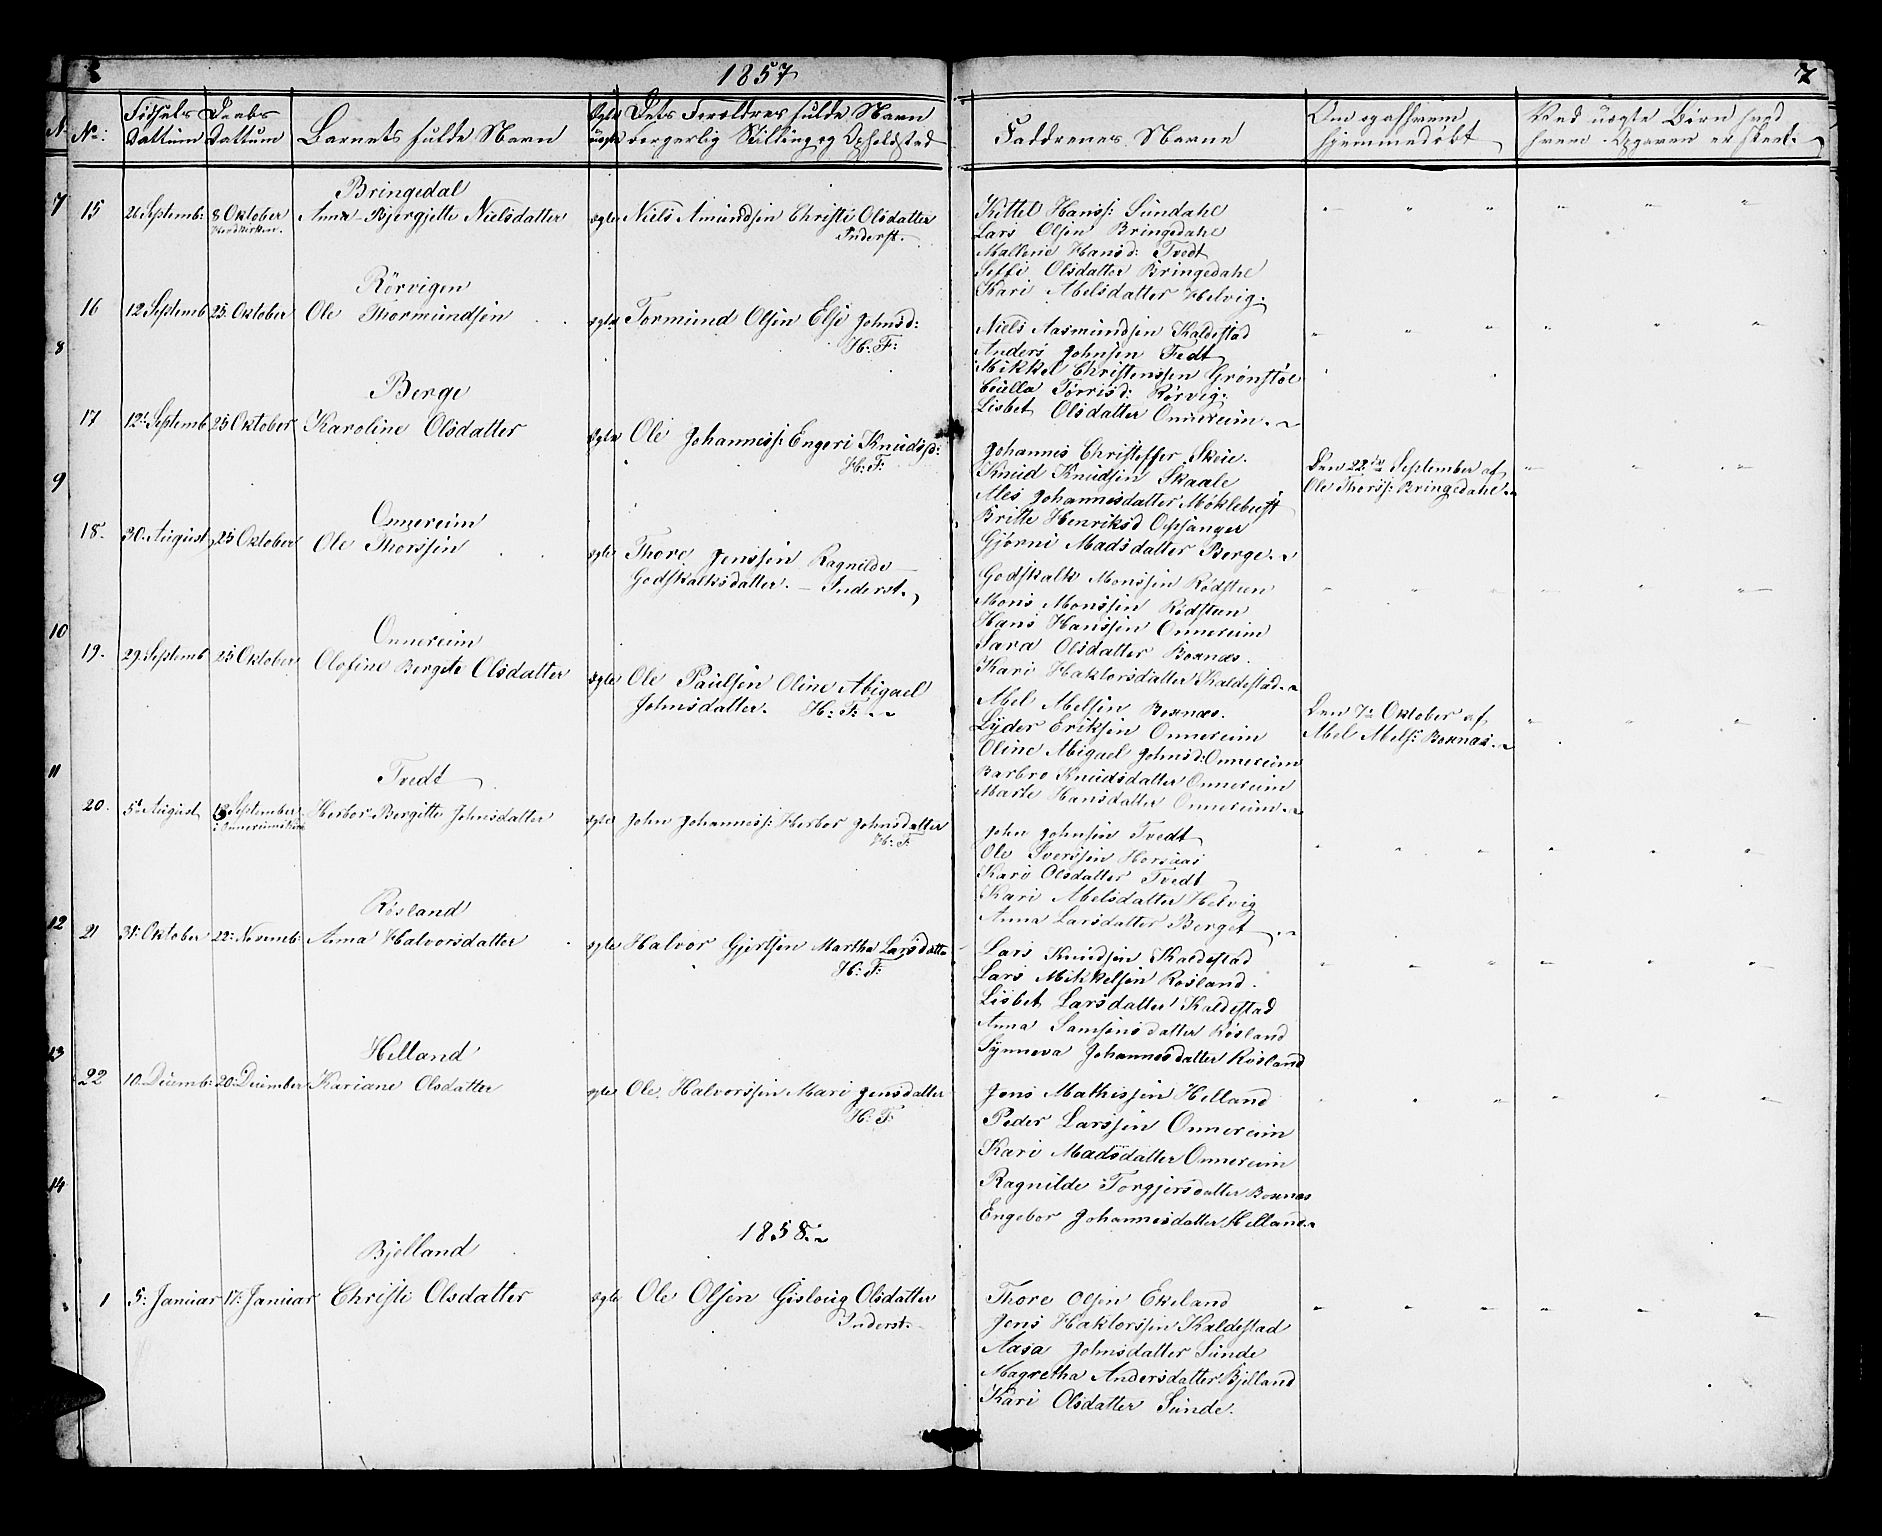 1857
7
No:
Fødsels Dattum
Daabs Dattum
Barnets fulde Navn
Ægte uægte
Dets Foreldres fulde Navn
borgerlig Stilling og Opholdsted
Faddrenes Navne
Om og af hvem
hjemmedøbt
Ved uægte Børn hvad
hvem Opgaven er skeet.
Bringedal
15 26 Septemb: 8 Oktober Anna Bjergjette Nielsdatter ægte Niels Amundsen Christi Olsdatter
Inderst.
Kittel Hanss: Sundahl
Lars Olsen Bringedahl
Mallene Hansd: Tvedt
Seffi Olsdatter Bringedahl
Kari Abelsdatter Helvig.
Rørvigen
16 12 Septemb 25 Oktober Ole Thormundsen ægte Tormund Olsen Else Johnsd:
H: F:
Niels Aasmundsen Kaldestad
Anders Johnsen Tedt
Mikkel Christenssen Grønstøl
Torrisd: Rørvig.
Lisbet Olsdatter Onnereim.
Berge
17 12: Septemb 25 Oktober Karoline Olsdatter ægte Ole Johanness: Engeri Knudsd:
H: F:
Johannes Christoffer Skeie.
Knud Knudsen Skaale
Ales Johannesdatter Møklebust
Britte Henriksd Opsanger
Gjørni Madsdatter Berge.
Den 22de September af
Ole Thorss: Bringedahl.
Onnereim
18. 30. August 25 Oktober Ole Thorssen ægte Thore Jenssen Ragnilde
Godskalksdatter. Inderst.
Godskalk Monssen Rødsteen
Mons Monssen Rødsteen
Hans Hanssen Onnereim
Sara Olsdatter Boxnæs.
Kari Haktorsdatter Kaldestad.
Onnereim
19. 29. Septemb 25 Oktober Olofine Bergete Olsdatter ægte Ole Paulsen Oline Abigael
Johnsdatter. H: F:
Abel Abelsen Boxnæs.
Lyder Eriksen Onnereim
Oline Abigael Johnsd: Onnereim
Barbro Knudsdatter Onnereim
Marte Hansdatter Onnereim.
Den 7de Oktober af
Abel Abels: Boxnæs.
Tvedt
20. 5t August 13 September Herbor Bergitte Johnsdatter ægte John Johanness: Herbor Johnsdatter
H: F
John Johnsen Tvedt
Ole Iverssen Horsaas
Kari Olsdatter Tvedt
Kari Abelsdatter Helvig
Anna Larsdatter Berget
Røsland
21 31: Oktober 22: Novemb: Anna Halvorsdatter ægte Halvor Gjertsen Martha Larsdatte
H: F:
Lars Knudsen Kaldestad
Lars Mikkelsen Røsland.
Lisbet Larsdatter Kaldestad
Anna Samsonsdatter Røsland
Synneva Johannesdatter Røsland
Helland
22 10. Decemb: 20: December Kariane Olsdatter ægte Ole Halvorssen Mari Jensdatter
H: F:
Jens Mathissen Helland
Peder Larssen Onnereim
Kari Madsdatter Onnereim
Ragnilde Torgjersdatter Boxnæs
Engebor Johannesdatter Helland.
1858.
Bjelland
1 5: Januar 17: Januar Christi Olsdatter ægte Ole Olsen Gisloug Olsdatter
Inderst.
Thore Olsen Ekeland
Jens Haktorssen Kaldestad
Aasa Johnsdatter Sunde
Magretha Andersdatter Bjelland
Kari Olsdatter Sunde.
7
8
9
10
11
12
13
14